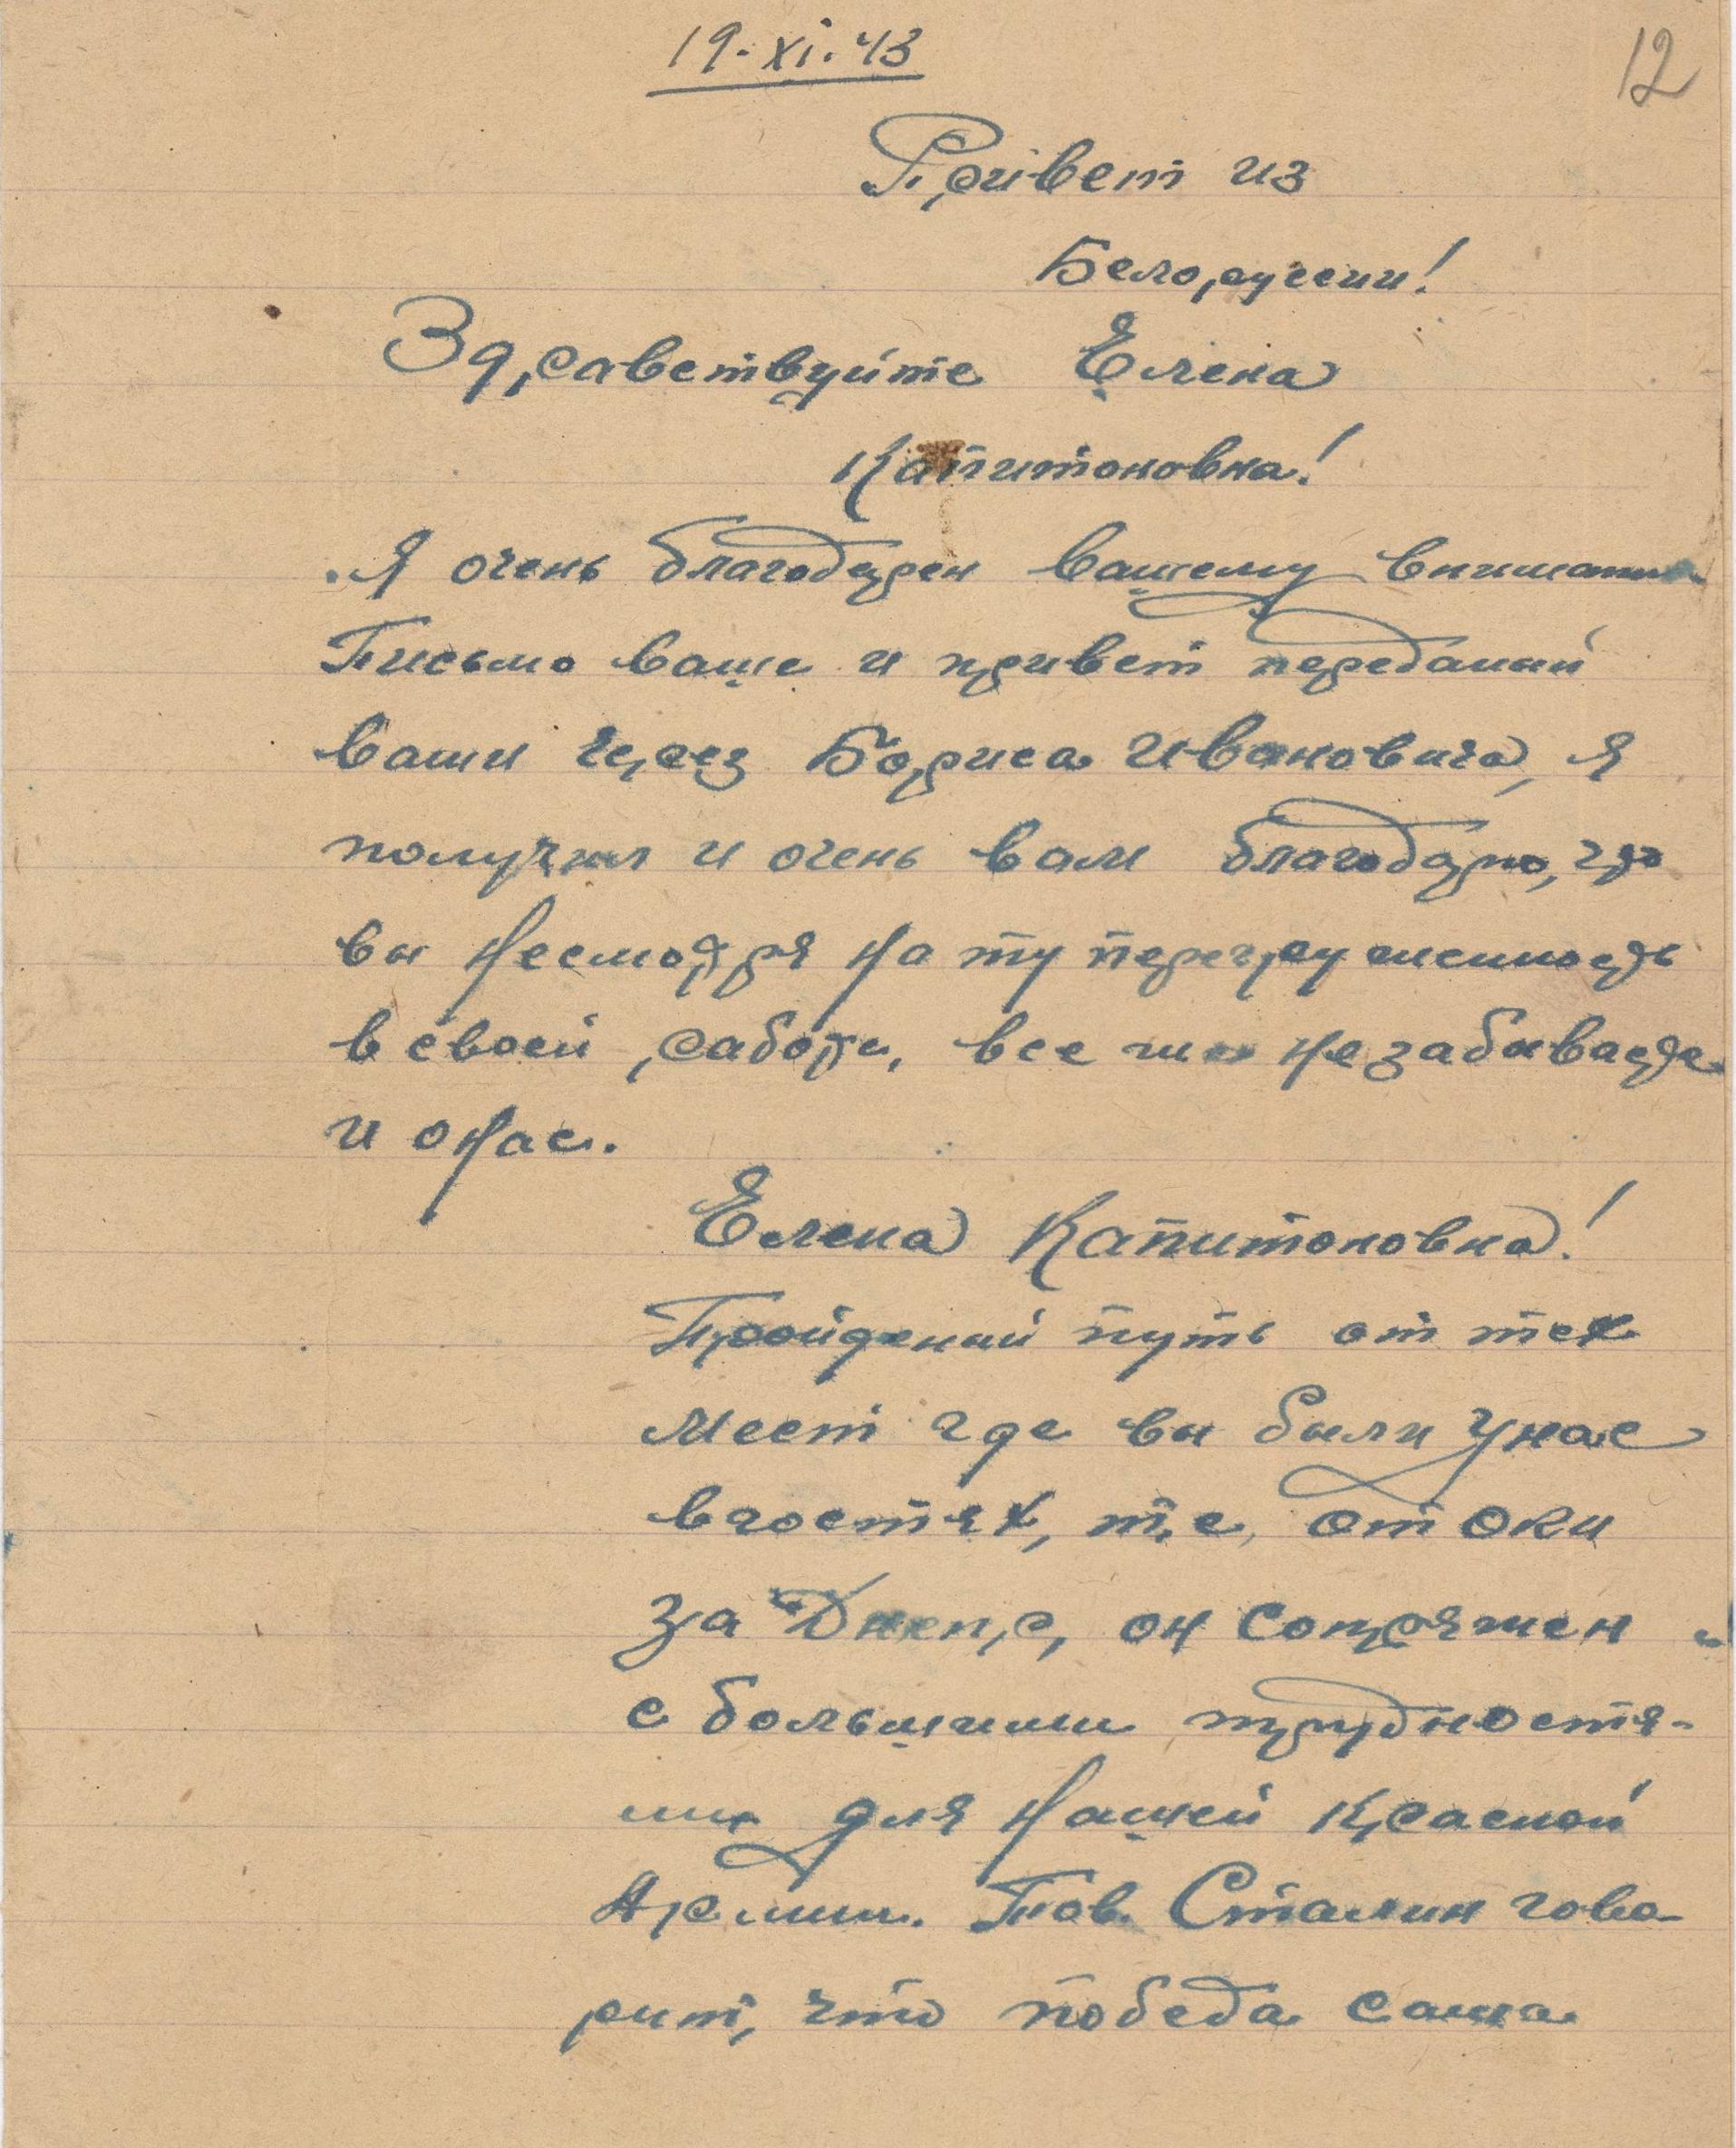 19.XI.43
12
Привет из
Белоруссии!
Здраветвуйте Елена
Капитоновна!
Я очень благодарен вашему внимани
Письмо ваше и привет переданый
вами через Бориса Ивановича, я
получил и очень вам благодарно, что
вы несмотря на ту перегруженность
в своей работе, все же не забываете
и о нас.
Елена Капитоновна!
Пройденый путь от тех
мест где вы были у нас
в гостях, т.е, от Оки
за Днепр, он сопряжен
с большими трудностя-
ми для нашей красной
Армии. Тов. Сталин гово-
рит, что победа сама